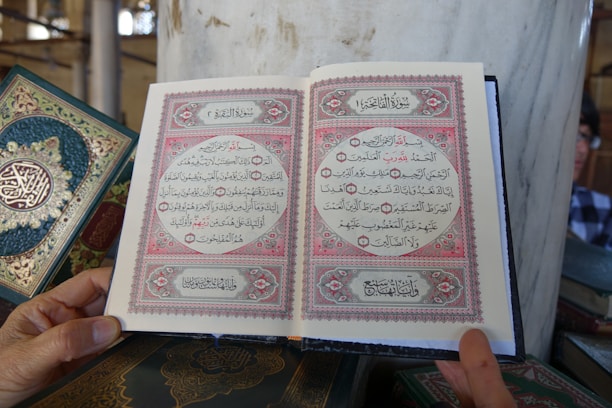 سُورَةُ الْفَاتِحَةِ ١
بِسْمِ اللَّهِ الرَّحْمَٰنِ الرَّحِيمِ
الْحَمْدُ لِلَّهِ رَبِّ الْعَالَمِينَ
الرَّحْمَٰنِ الرَّحِيمِ مَالِكِ يَوْمِ الدِّينِ
إِيَّاكَ نَعْبُدُ وَإِيَّاكَ نَسْتَعِينُ اهْدِنَا
الصِّرَاطَ الْمُسْتَقِيمَ صِرَاطَ الَّذِينَ أَنْعَمْتَ
عَلَيْهِمْ غَيْرِ الْمَغْضُوبِ عَلَيْهِمْ
وَلَا الضَّالِّينَ
وَآيَاتُهَا سَبْعٌ
سُورَةُ الْبَقَرَةِ ٢
بِسْمِ اللَّهِ الرَّحْمَٰنِ الرَّحِيمِ
الم ذَٰلِكَ الْكِتَابُ لَا رَيْبَ فِيهِ هُدًى
لِلْمُتَّقِينَ الَّذِينَ يُؤْمِنُونَ بِالْغَيْبِ وَيُقِيمُونَ الصَّلَوٰةَ
وَمِمَّا رَزَقْنَاهُمْ يُنْفِقُونَ وَالَّذِينَ يُؤْمِنُونَ بِمَا أُنْزِلَ
إِلَيْكَ وَمَا أُنْزِلَ مِنْ قَبْلِكَ وَبِالْآخِرَةِ هُمْ يُوقِنُونَ
أُولَٰئِكَ عَلَىٰ هُدًى مِنْ رَبِّهِمْ وَأُولَٰئِكَ
هُمُ الْمُفْلِحُونَ
وَآيَاتُهَا